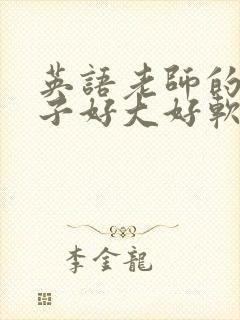 英語老師的
子好大好軟
李金龍